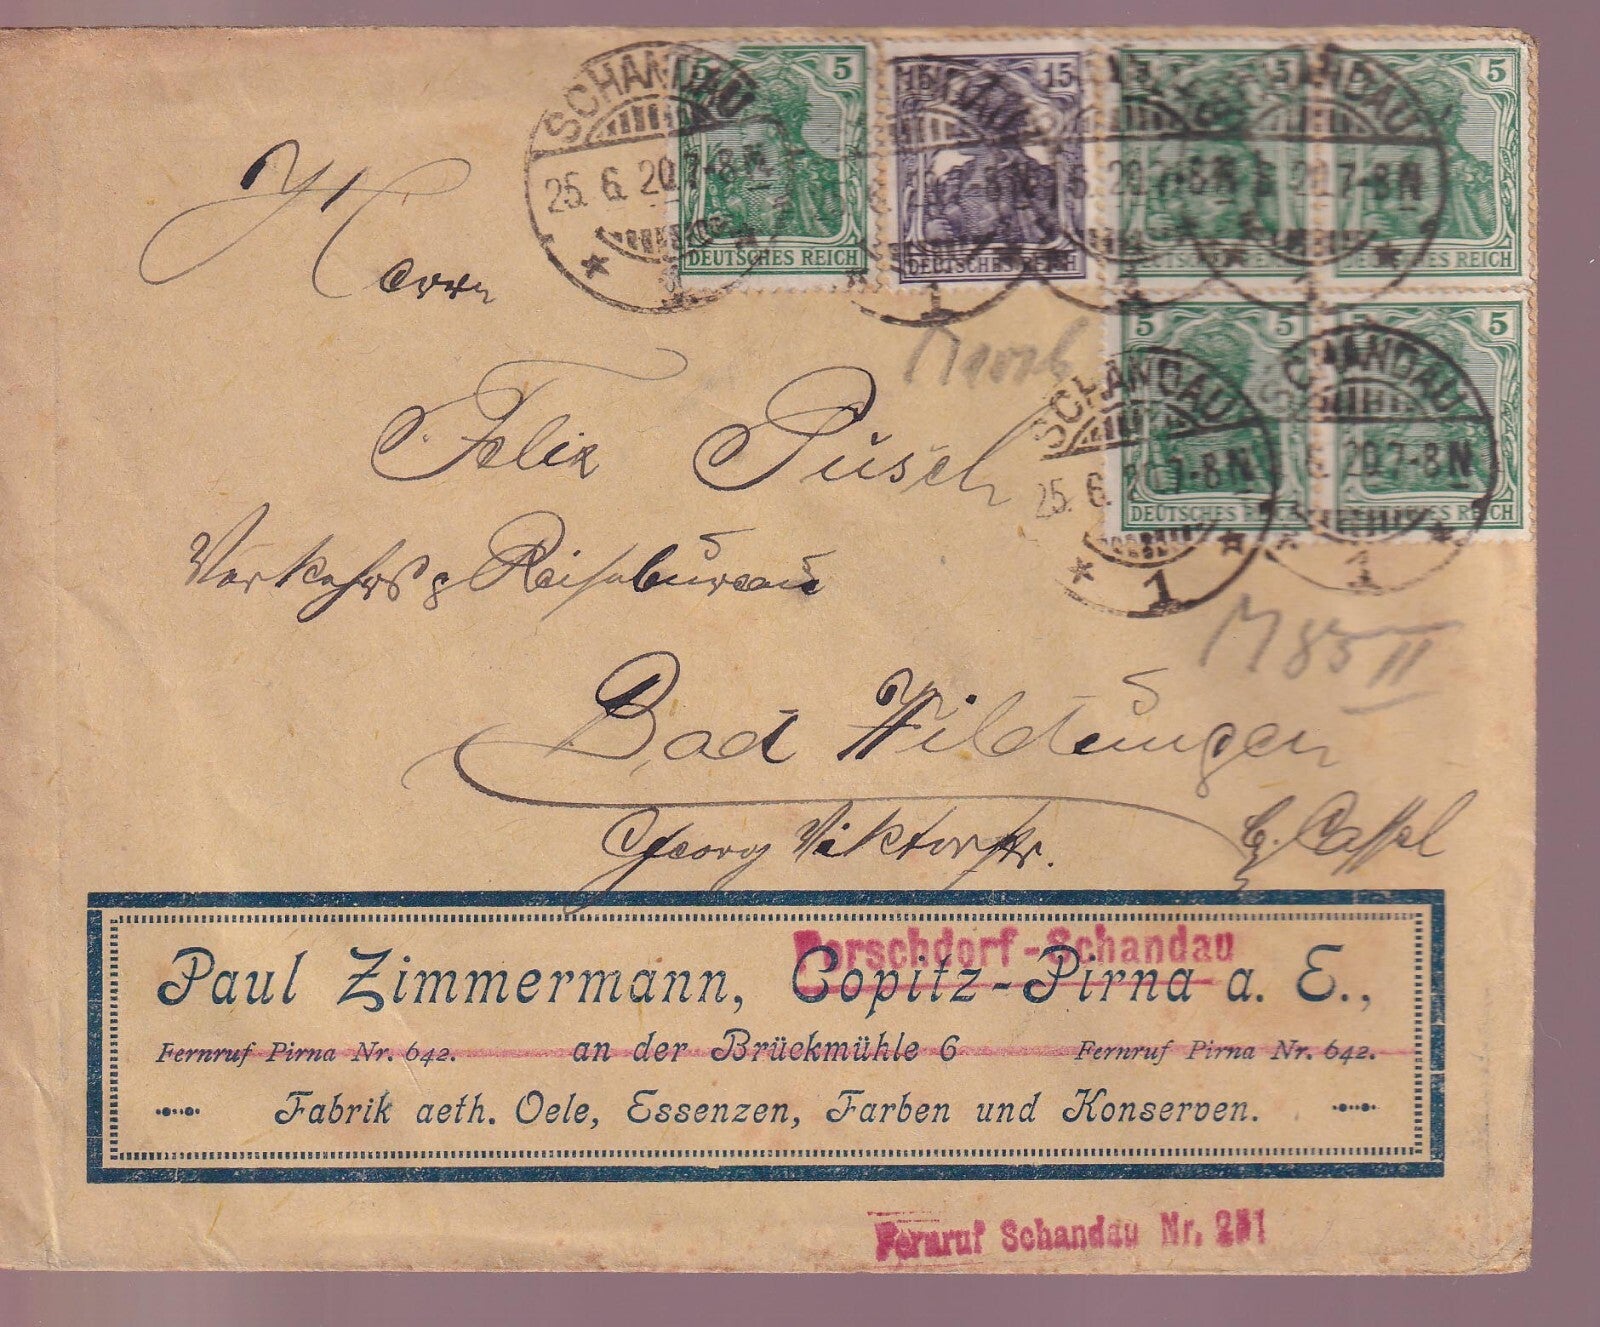 5 5 15 15 5 5 5
DEUTSCHES REICH DEUTSCHES REICH DEUTSCHES REICH
SCHANDAU
25. 6. 20. 7-8 N
20. 7-8 N
1
5 5 5
DEUTSCHES REICH
SCHANDAU SCHANDAU
25. 6. 20. 7-8 N 20. 7-8 N
1 1
Herrn
Felix Pusch
Verkehrs & Reisebureau
M 85 II
Bad Wildungen
Georg Viktorstr. Cassel
Porschdorf-Schandau
Paul Zimmermann, Copitz-Pirna a. E.,
Fernruf Pirna Nr. 642. an der Brückmühle 6 Fernruf Pirna Nr. 642.
Fabrik aeth. Oele, Essenzen, Farben und Konserven.
Fernruf Schandau Nr. 251